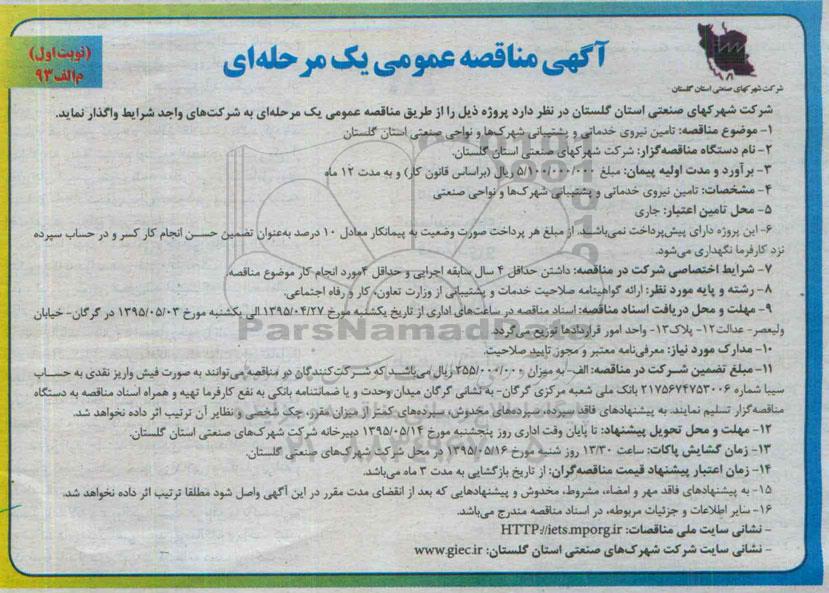 (نوبت اول)
م الف ۹۳
آگهی مناقصه عمومی یک مرحله‌ای
شرکت شهرکهای صنعتی استان گلستان
شرکت شهرکهای صنعتی استان گلستان در نظر دارد پروژه ذیل را از طریق مناقصه عمومی یک مرحله‌ای به شرکت‌های واجد شرایط واگذار نماید.
۱- موضوع مناقصه: تامین نیروی خدماتی و پشتیبانی شهرک‌ها و نواحی صنعتی استان گلستان
۲- نام دستگاه مناقصه‌گزار: شرکت شهرکهای صنعتی استان گلستان.
۳- برآورد و مدت اولیه پیمان: مبلغ ۵/۱۰۰/۰۰۰/۰۰۰ ریال (براساس قانون کار) و به مدت ۱۲ ماه
۴- مشخصات: تامین نیروی خدماتی و پشتیبانی شهرک‌ها و نواحی صنعتی
۵- محل تامین اعتبار: جاری
۶- این پروژه دارای پیش‌پرداخت نمی‌باشد. از مبلغ هر پرداخت صورت وضعیت به پیمانکار معادل ۱۰ درصد به‌عنوان تضمین حسن انجام کار کسر و در حساب سپرده
نزد کارفرما نگهداری می‌شود.
۷- شرایط اختصاصی شرکت در مناقصه: داشتن حداقل ۴ سال سابقه اجرایی و حداقل ۴مورد انجام کار موضوع مناقصه.
۸- رشته و پایه مورد نظر: ارائه گواهینامه صلاحیت خدمات و پشتیبانی از وزارت تعاون، کار و رفاه اجتماعی.
۹- مهلت و محل دریافت اسناد مناقصه: اسناد مناقصه در ساعت‌های اداری از تاریخ یکشنبه مورخ ۱۳۹۵/۰۴/۲۷ الی یکشنبه مورخ ۱۳۹۵/۰۵/۰۳ در گرگان- خیابان
ولیعصر- عدالت۱۲- پلاک۱۳- واحد امور قراردادها توزیع می‌گردد.
ParsNamadData
۱۰- مدارک مورد نیاز: معرفی‌نامه معتبر و مجوز تایید صلاحیت.
۱۱- مبلغ تضمین شرکت در مناقصه: الف- به میزان ۲۵۵/۰۰۰/۰۰۰ ریال می‌باشد که شرکت‌کنندگان در مناقصه می‌توانند به صورت فیش واریز نقدی به حساب
سیبا شماره ۲۱۷۵۶۷۴۷۵۳۰۰۶ بانک ملی شعبه مرکزی گرگان- به نشانی گرگان میدان وحدت و یا ضمانتنامه بانکی به نفع کارفرما تهیه و همراه اسناد مناقصه به دستگاه
مناقصه‌گزار تسلیم نمایند. به پیشنهادهای فاقد سپرده، سپرده‌های مخدوش، سپرده‌های کمتر از میزان مقرر، چک شخصی و نظایر آن ترتیب اثر داده نخواهد شد.
۱۲- مهلت و محل تحویل پیشنهاد: تا پایان وقت اداری روز پنجشنبه مورخ ۱۳۹۵/۰۵/۱۴ دبیرخانه شرکت شهرک‌های صنعتی استان گلستان.
۱۳- زمان گشایش پاکات: ساعت ۱۳/۳۰ روز شنبه مورخ ۱۳۹۵/۰۵/۱۶ در محل شرکت شهرک‌های صنعتی گلستان.
۱۴- زمان اعتبار پیشنهاد قیمت مناقصه‌گران: از تاریخ بازگشایی به مدت ۳ ماه می‌باشد.
۱۵- به پیشنهادهای فاقد مهر و امضاء، مشروط، مخدوش و پیشنهادهایی که بعد از انقضای مدت مقرر در این آگهی واصل شود مطلقا ترتیب اثر داده نخواهد شد.
۱۶- سایر اطلاعات و جزئیات مربوطه، در اسناد مناقصه مندرج می‌باشد.
- نشانی سایت ملی مناقصات: HTTP://iets.mporg.ir
- نشانی سایت شرکت شهرک‌های صنعتی استان گلستان: www.giec.ir